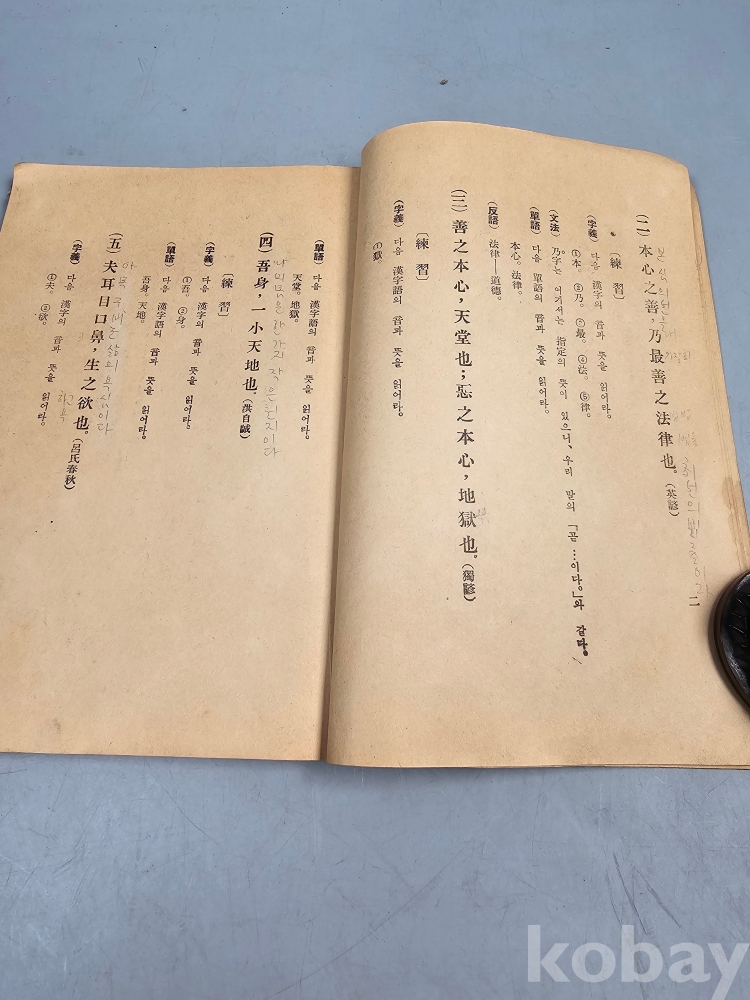 (二) 本心之善，乃最善之法律也。(英諺)
〔練習〕
(字義) 다음 漢字의 音과 뜻을 읽어라。
①本。②乃。③最。④法。⑤律。
(文法) 乃字는 여기서는 指定의 뜻이 있으니、우리 말의 「곧…이다。」와 같다。
(單語) 다음 單語의 音과 뜻을 읽어라。
本心。法律。
(反語) 法律—道德。
(三) 善之本心，天堂也；惡之本心，地獄也。(獨諺)
〔練習〕
(字義) 다음 漢字의 音과 뜻을 읽어라。
①獄。
(單語) 다음 漢字語의 音과 뜻을 읽어라。
天堂。地獄。
(四) 吾身，一小天地也。(洪自誠)
〔練習〕
(字義) 다음 漢字의 音과 뜻을 읽어라。
①吾。②身。
(單語) 다음 漢字語의 音과 뜻을 읽어라。
吾身。天地。
(五) 夫耳目口鼻，生之欲也。(呂氏春秋)
(字義) 다음 漢字의 音과 뜻을 읽어라。
①夫。②欲。
kobay